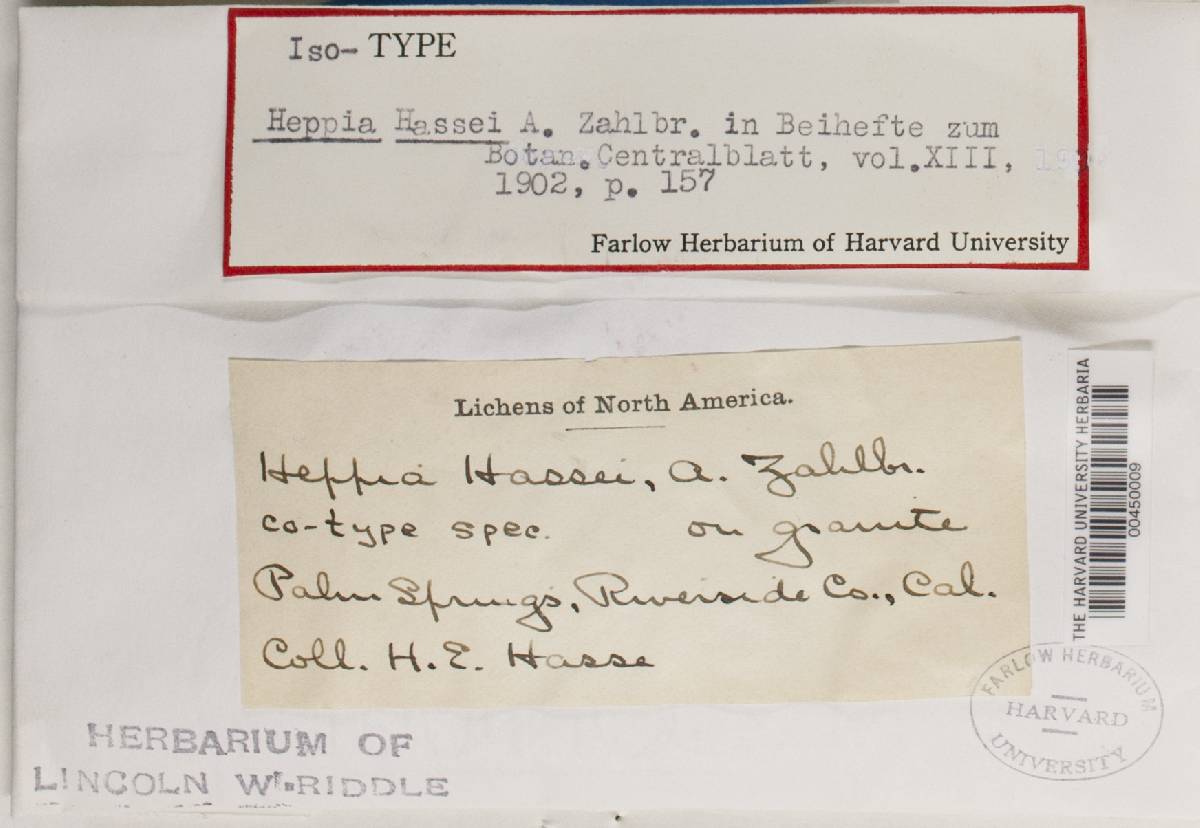 Iso- TYPE
Heppia Hassei A. Zahlbr. in Beihefte zum
Botan. Centralblatt, vol.XIII,
1902, p. 157
Farlow Herbarium of Harvard University
Lichens of North America.
Heppia Hassei, A. Zahlbr.
co-type spec. on granite
Palm Springs, Riverside Co., Cal.
Coll. H. E. Hasse
THE HARVARD UNIVERSITY HERBARIA
00450009
FARLOW HERBARIUM
HARVARD
UNIVERSITY
HERBARIUM OF
LINCOLN W. RIDDLE